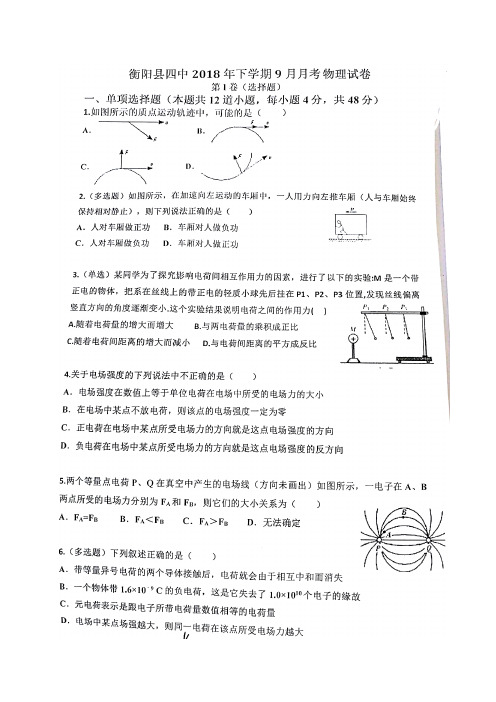 衡阳县四中 2018 年下学期 9 月月考物理试卷
第 1 卷（选择题）
一、单项选择题（本题共 12 道小题，每小题 4 分，共 48 分）
1.如图所示的质点运动轨迹中，可能的是（ ）
A. B.
C. D.
2.（多选题）如图所示，在加速向左运动的车厢中，一人用力向左推车厢（人与车厢始终
保持相对静止），则下列说法正确的是（ ）
A．人对车厢做正功 B．车厢对人做负功
C．人对车厢做负功 D．车厢对人做正功
3.（单选）某同学为了探究影响电荷间相互作用力的因素，进行了以下的实验:M 是一个带
正电的物体，把系在丝线上的带正电的轻质小球先后挂在 P1、P2、P3 位置,发现丝线偏离
竖直方向的角度逐渐变小.这个实验结果说明电荷之间的作用力( )
A.随着电荷量的增大而增大 B.与两电荷量的乘积成正比
C.随着电荷间距离的增大而减小 D.与电荷间距离的平方成反比
P1 P2 P3
M
4.关于电场强度的下列说法中不正确的是（ ）
A．电场强度在数值上等于单位电荷在电场中所受的电场力的大小
B．在电场中某点不放电荷，则该点的电场强度一定为零
C．正电荷在电场中某点所受电场力的方向就是这点电场强度的方向
D．负电荷在电场中某点所受电场力的方向就是这点电场强度的反方向
5.两个等量点电荷 P、Q 在真空中产生的电场线（方向未画出）如图所示，一电子在 A、B
两点所受的电场力分别为 FA 和 FB，则它们的大小关系为（ ）
A．FA=FB B．FA＜FB C．FA＞FB D．无法确定
B
A
P Q
6.（多选题）下列叙述正确的是（ ）
A．带等量异号电荷的两个导体接触后，电荷就会由于相互中和而消失
B．一个物体带 1.6×10⁻⁹ C 的负电荷，这是它失去了 1.0×10¹⁰ 个电子的缘故
C．元电荷表示是跟电子所带电荷量数值相等的电荷量
D．电场中某点场强越大，则同一电荷在该点所受电场力越大